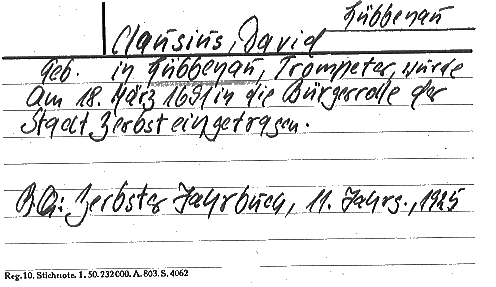 Lübbenau
Clausius, David
Geb. in Lübbenau, Trompeter, wurde
am 18. März 1691 in die Bürgerrolle der
Stadt Zerbst eingetragen.
B.Q.: Zerbster Jahrbuch, 11. Jahrg., 1925
Reg. 10. Stichnote. 1. 50. 232000. A. 803. S. 4062